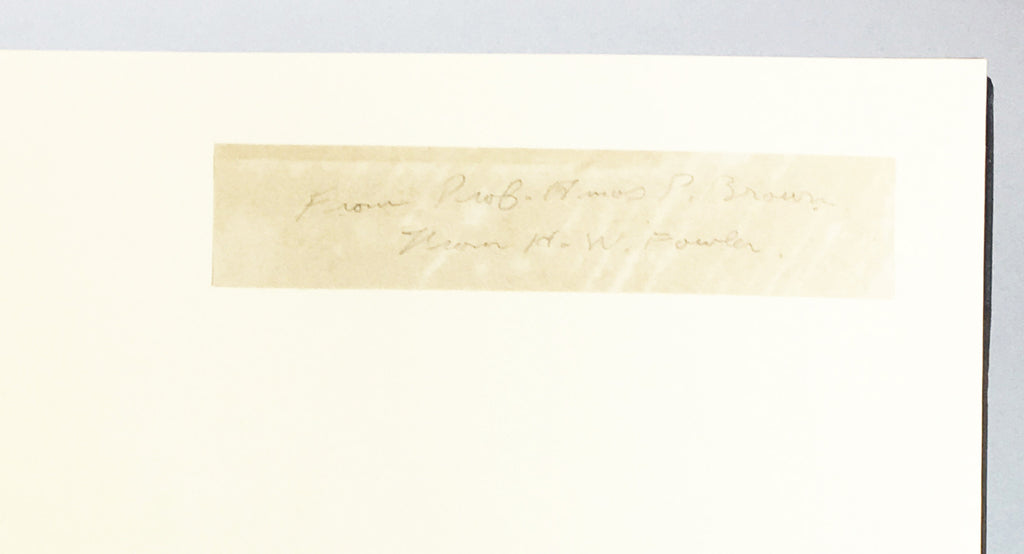 From Prof. Amos P. Brown
From H. W. Fowler.